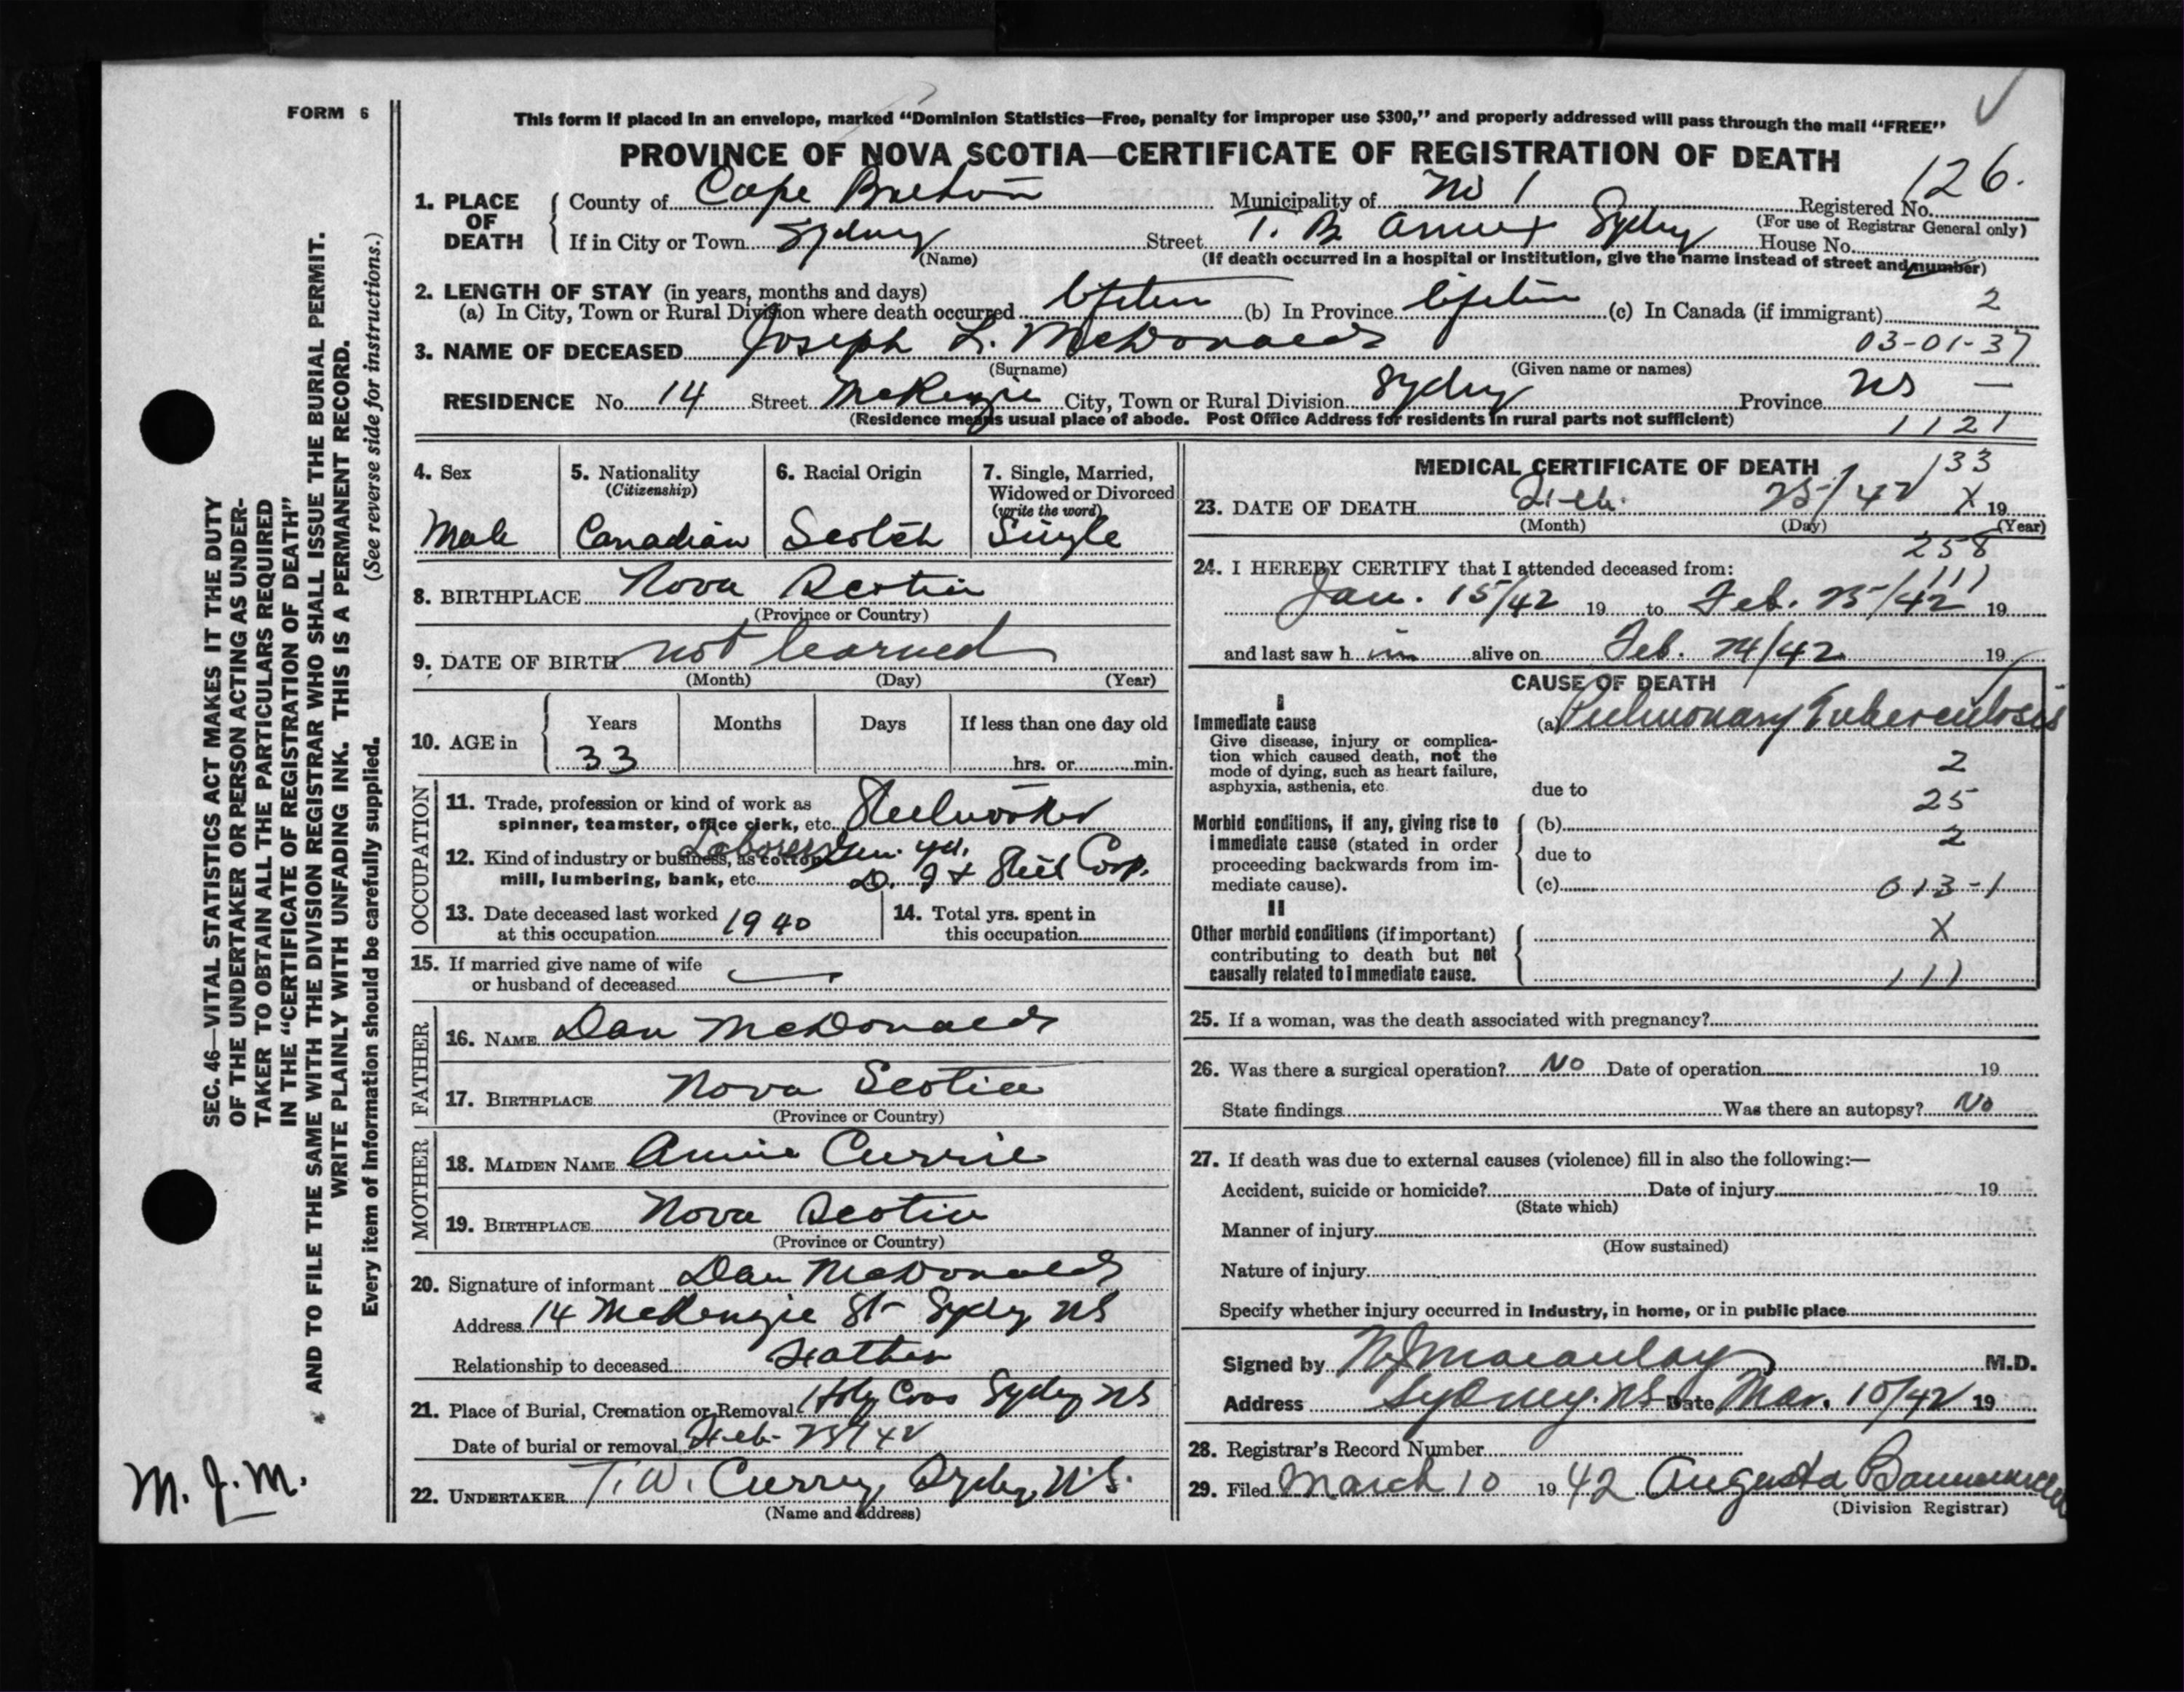 FORM 6
This form if placed in an envelope, marked “Dominion Statistics—Free, penalty for improper use $300,” and properly addressed will pass through the mail “FREE”
PROVINCE OF NOVA SCOTIA—CERTIFICATE OF REGISTRATION OF DEATH
126.
1. PLACE OF DEATH
County of Cape Breton Municipality of No 1 Registered No.
(For use of Registrar General only)
If in City or Town Sydney Street T. B. Annex Sydney House No.
(Name) (If death occurred in a hospital or institution, give the name instead of street and number)
2. LENGTH OF STAY (in years, months and days)
(a) In City, Town or Rural Division where death occurred lifetime (b) In Province lifetime (c) In Canada (if immigrant) 2
3. NAME OF DECEASED Joseph L. McDonald 03-01-37
(Surname) (Given name or names)
RESIDENCE No. 14 Street McKenzie City, Town or Rural Division Sydney Province NS —
(Residence means usual place of abode. Post Office Address for residents in rural parts not sufficient) 1121
4. Sex
Male
5. Nationality
(Citizenship)
Canadian
6. Racial Origin
Scotch
7. Single, Married,
Widowed or Divorced
(write the word)
Single
8. BIRTHPLACE Nova Scotia
(Province or Country)
9. DATE OF BIRTH not learned
(Month) (Day) (Year)
10. AGE in
Years Months Days If less than one day old
33 hrs. or min.
OCCUPATION
11. Trade, profession or kind of work as
spinner, teamster, office clerk, etc. Steelworker
12. Kind of industry or business, as cotton Laborer Gen. yd.
mill, lumbering, bank, etc. D. I & Steel Corp.
13. Date deceased last worked
at this occupation 1940
14. Total yrs. spent in
this occupation
15. If married give name of wife
or husband of deceased —
FATHER
16. NAME Dan McDonald
17. BIRTHPLACE Nova Scotia
(Province or Country)
MOTHER
18. MAIDEN NAME Annie Currie
19. BIRTHPLACE Nova Scotia
(Province or Country)
20. Signature of informant Dan McDonald
Address 14 McKenzie St Sydney NS
Relationship to deceased Father
21. Place of Burial, Cremation or Removal Holy Cross Sydney NS
Date of burial or removal Feb
22. UNDERTAKER T. W. Curry, Sydney, N.S.
(Name and address)
MEDICAL CERTIFICATE OF DEATH
133
23. DATE OF DEATH Feb. 25/42 X 19
(Month) (Day) (Year)
258
24. I HEREBY CERTIFY that I attended deceased from:
111
Jan. 15/42 19 to Feb. 25/42 19
and last saw h im alive on Feb. 24/42 19
CAUSE OF DEATH
I
Immediate cause (a) Pulmonary Tuberculosis
Give disease, injury or complica-
tion which caused death, not the
mode of dying, such as heart failure,
asphyxia, asthenia, etc.
2
due to
25
Morbid conditions, if any, giving rise to
immediate cause (stated in order
proceeding backwards from im-
mediate cause).
(b)
2
due to
(c) 013-1
II
Other morbid conditions (if important)
contributing to death but not
causally related to immediate cause.
X
111
25. If a woman, was the death associated with pregnancy?
26. Was there a surgical operation? No Date of operation 19
State findings Was there an autopsy? No
27. If death was due to external causes (violence) fill in also the following:—
Accident, suicide or homicide? Date of injury 19
(State which)
Manner of injury
(How sustained)
Nature of injury
Specify whether injury occurred in industry, in home, or in public place
Signed by Macaulay M.D.
Address Sydney. NS Date Mar. 10/42 19
28. Registrar's Record Number
29. Filed March 10 1942 Augusta
(Division Registrar)
SEC. 46—VITAL STATISTICS ACT MAKES IT THE DUTY
OF THE UNDERTAKER OR PERSON ACTING AS UNDER-
TAKER TO OBTAIN ALL THE PARTICULARS REQUIRED
IN THE “CERTIFICATE OF REGISTRATION OF DEATH”
AND TO FILE THE SAME WITH THE DIVISION REGISTRAR WHO SHALL ISSUE THE BURIAL PERMIT.
WRITE PLAINLY WITH UNFADING INK. THIS IS A PERMANENT RECORD.
Every item of information should be carefully supplied. (See reverse side for instructions.)
M. J. M.